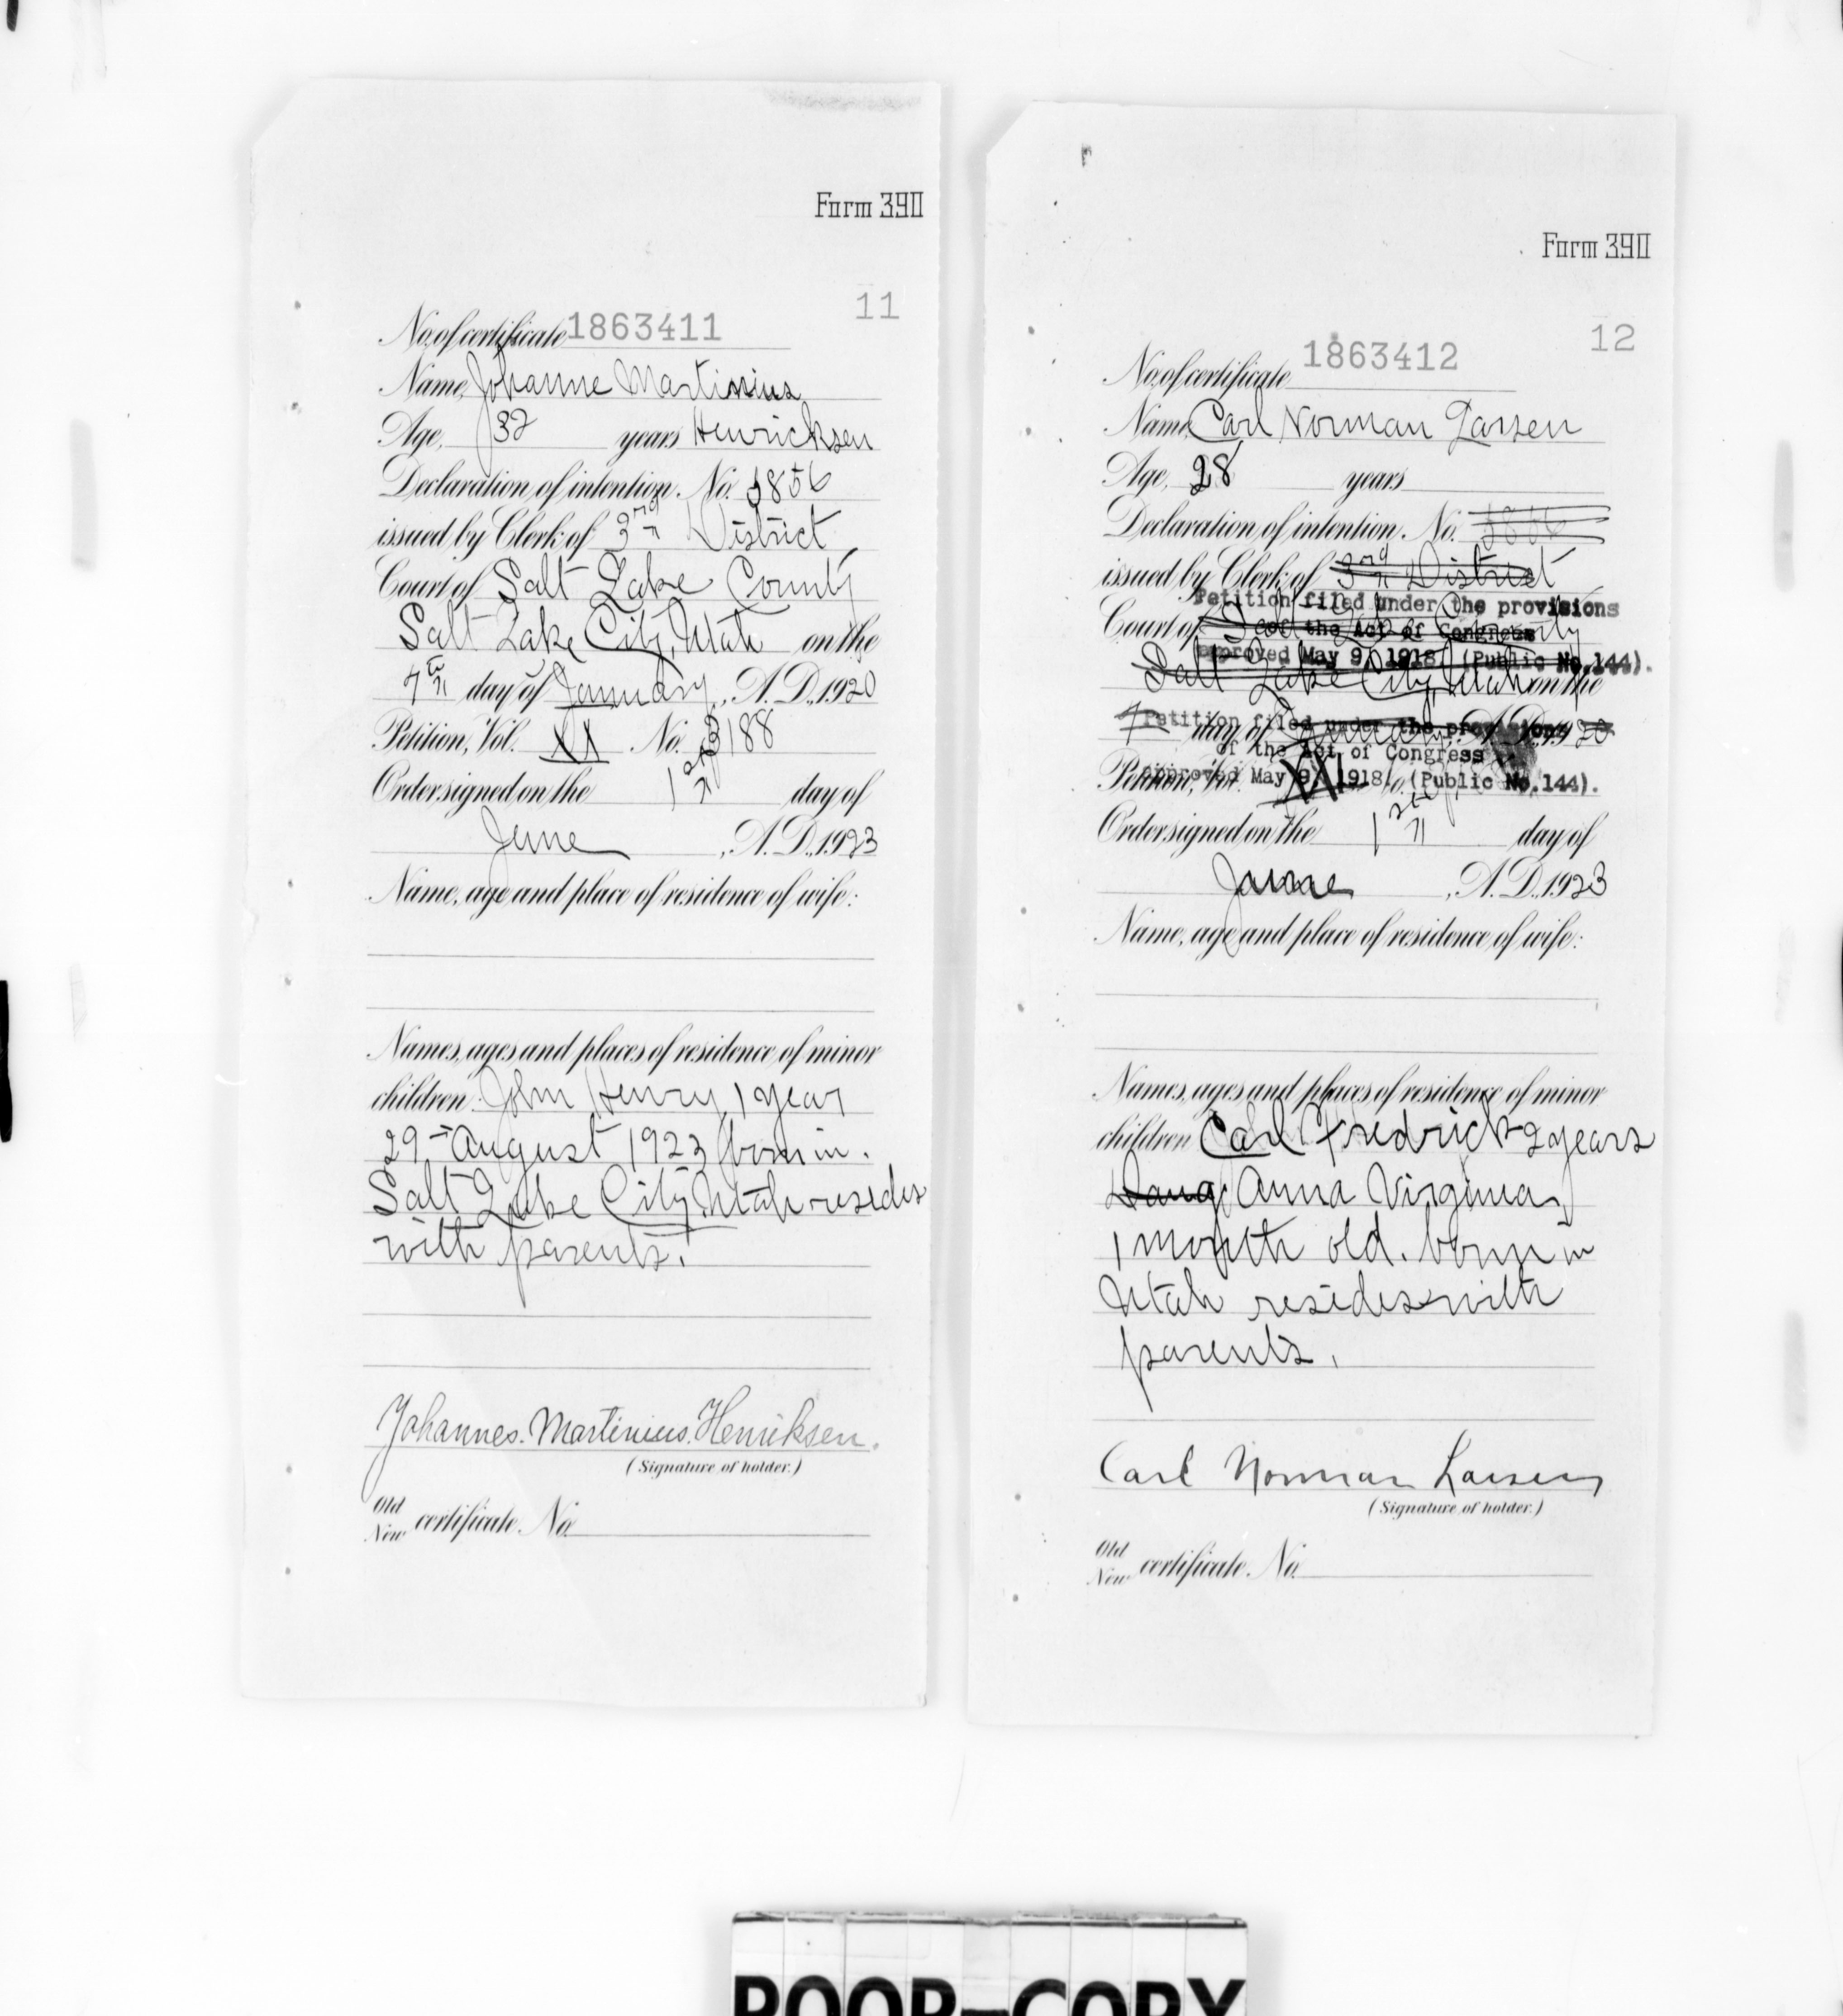 Form 390
11
No. of certificate 1863411
Name, Johanne Martinius
Age, 32 years Henricksen
Declaration of intention, No. 5856
issued by Clerk of 3rd District
Court of Salt Lake County
Salt Lake City, Utah on the
7th day of January, A. D., 1920
Petition, Vol. XX No. 3188
Order signed on the 1st day of
June, A. D., 1923
Name, age and place of residence of wife:
Names, ages and places of residence of minor
children: John Henry, 1 year
29 August 1923 born in
Salt Lake City, Utah resides
with parents.
Johannes. Martinius. Henriksen.
(Signature of holder.)
Old
New certificate No.
Form 390
12
No. of certificate 1863412
Name, Carl Norman Larsen
Age, 28 years
Declaration of intention, No.
issued by Clerk of 3rd District
Petition filed under the provisions
Court of Salt Lake County
of the Act of Congress
approved May 9, 1918 (Public No.144).
Salt Lake City, Utah on the
Petition filed under the provisions
7 day of January, A. D., 1920
of the Act of Congress
approved May 9, 1918, (Public No.144).
Petition, Vol. XX No.
Order signed on the 12th day of
June, A. D., 1923
Name, age and place of residence of wife:
Names, ages and places of residence of minor
children Carl Fredrick 2 years
Daug Anna Virginia,
1 month old. born in
Utah resides with
parents.
Carl Norman Larsen
(Signature of holder.)
Old
New certificate No.
POOR-COPY